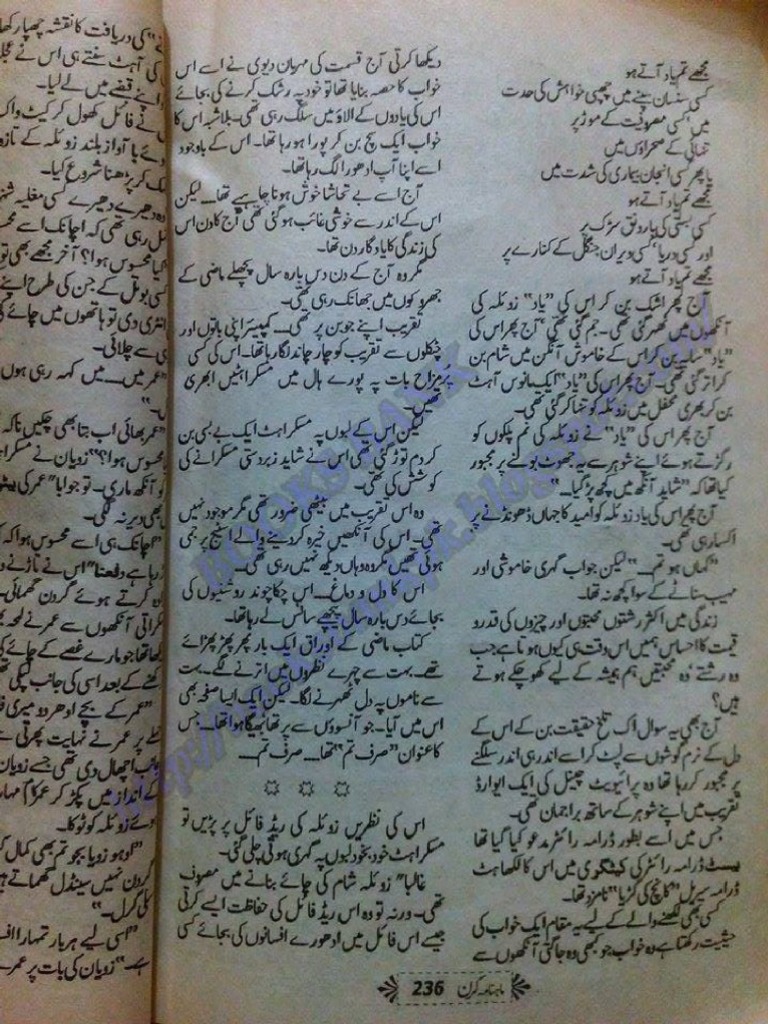 مجھے تم یاد آتے ہو
کسی سنسان سپنے میں چھپی خواہش کی حدت
میں، کسی مصروفیت کے موڑ پر
تنہائی کے صحراؤں میں
یا پھر کسی انجان بیماری کی شدت میں
مجھے تم یاد آتے ہو
کسی بستی کی بارونق سڑک پر
اور کسی دریا، کسی ویران جنگل کے کنارے پر
مجھے تم یاد آتے ہو
آج پھر اشک بن کر اس کی "یاد" زونلہ کی
آنکھوں میں ٹھہر گئی تھی۔ جم گئی تھی "آج پھر اس کی
"یاد" سایہ بن کر اس کے خاموش آنگن میں شام بن
کر اتر گئی تھی۔ آج پھر اس کی "یاد" ایک مانوس آہٹ
بن کر بھری محفل میں زونلہ کو تنہا کر گئی تھی۔
آج پھر اس کی "یاد" نے زونلہ کی نم پلکوں کو
رگڑتے ہوئے اپنے شوہر سے یہ جھوٹ بولنے پر مجبور
کیا تھا کہ "شاید آنکھ میں کچھ پڑ گیا۔"
آج پھر اس کی یاد زونلہ کو امید کا جہاں ڈھونڈنے پر
اکسا رہی تھی۔
"کہاں ہو تم۔۔" لیکن جواب گہری خاموشی اور
مہیب سناٹے کے سوا کچھ نہ تھا۔
زندگی میں اکثر رشتوں محبتوں اور چیزوں کی قدر و
قیمت کا احساس ہمیں اس وقت ہی کیوں ہوتا ہے جب
وہ رشتے وہ محبتیں ہم ہمیشہ کے لیے کھو چکے ہوتے
ہیں؟
آج بھی یہ سوال اک تلخ حقیقت بن کے اس کے
دل کے نرم گوشوں سے لپٹ کر اسے اندر ہی اندر سلگنے
پر مجبور کر رہا تھا وہ پرائیویٹ چینل کی ایک ایوارڈ
تقریب میں اپنے شوہر کے ساتھ براجمان تھی۔
جس میں اسے بطور ڈرامہ رائٹر مدعو کیا گیا تھا
بیسٹ ڈرامہ رائٹر کی کیٹگری میں اس کا لکھا ہٹ
ڈرامہ سیریل "کانچ کی گڑیا" نامزد تھا۔
کسی بھی لکھنے والے کے لیے یہ مقام ایک خواب کی
حیثیت رکھتا ہے وہ خواب جو کبھی وہ جاگتی آنکھوں سے
دیکھا کرتی آج قسمت کی مہربان دیوی نے اسے اس
خواب کا حصہ بنایا تھا تو خود پہ رشک کرنے کی بجائے
اس کی یادوں کے الاؤ میں سلگ رہی تھی۔ بلاشبہ اس کا
خواب ایک سچ بن کر پورا ہو رہا تھا۔ اس کے باوجود
اسے اپنا آپ ادھورا لگ رہا تھا۔
آج اسے بے تحاشا خوش ہونا چاہیے تھا۔ لیکن
اس کے اندر سے خوشی غائب ہو گئی تھی آج کا دن اس
کی زندگی کا یادگار دن تھا۔
مگر وہ آج کے دن دس بارہ سال پچھلے ماضی کے
جھروکوں میں جھانک رہی تھی۔
تقریب اپنے جوبن پر تھی۔ کمپیئر اپنی باتوں اور
چٹکلوں سے تقریب کو چار چاند لگا رہا تھا۔ اس کی کسی
پرمزاح بات پہ پورے ہال میں مسکراہٹیں ابھری
تھیں۔
لیکن اس کے لبوں پہ مسکراہٹ ایک بے بسی بن
کر دم توڑ گئی تھی اس نے شاید زبردستی مسکرانے کی
کوشش کی تھی۔
وہ اس تقریب میں بیٹھی ضرور تھی مگر موجود نہیں
تھی۔ اس کی آنکھیں خیرہ کر دینے والے اسٹیج پر جمی
ہوئی تھیں مگر وہ وہاں دیکھ نہیں رہی تھی۔
اس کا دل و دماغ۔۔ اس چکاچوند روشنیوں کی
بجائے دس بارہ سال پیچھے سانس لے رہا تھا۔
کتاب ماضی کے اوراق ایک بار پھر پھڑپھڑائے
تھے۔ بہت سے چہرے نظروں میں اترنے لگے۔ بہت
سے ناموں پہ دل ٹھہرنے لگا۔ لیکن ایک ایسا صفحہ بھی
اس میں آیا۔ جو آنسوؤں سے پر تھا بھیگا ہوا تھا۔ جس
کا عنوان "صرف تم" تھا۔۔ صرف تم۔۔
☼ ☼ ☼
اس کی نظریں زونلہ کی ریڈ فائل پر پڑیں تو
مسکراہٹ خود بخود لبوں پہ گہری ہوتی چلی گئی۔
غالبا" زونلہ شام کی چائے بنانے میں مصروف
تھی۔ ورنہ تو وہ اس ریڈ فائل کی حفاظت ایسے کرتی
جیسے اس فائل میں ادھورے افسانوں کی بجائے کسی
ماہنامہ کرن 236
کی دریافت کا نقشہ چھپا رکھا
کی آہٹ سنتے ہی اس نے
اپنے قبضے میں لے لیا۔
نے فائل کھول کر کیٹ واک
بآواز بلند زونلہ کے تازہ
کر پڑھنا شروع کیا۔
دھیرے دھیرے کسی مغلیہ
رہی تھی کہ اچانک اسے
محسوس ہوا؟ آخر مجھے بھی تو
کسی بوتل کے جن کی طرح اپنے
انٹری دی تو ہاتھوں میں چائے
سے چلائی۔
"عمر میں۔۔ میں کہہ رہی ہوں
"عمر بھائی اب بتا بھی چکیں
محسوس ہوا؟" زویان نے
آنکھ ماری۔ تو جوابا" عمر کی
بھی دیر نہ لگی۔
"اچانک ہی اسے محسوس ہوا کہ
رہا ہے دفعتا" اس نے
کرتے ہوئے گردن گھمائی۔
آنکھوں سے عمر نے
جو مارے غصے کے چائے
کے بعد اسی کی جانب لپکی
"عمر کے بچے ادھر دو میری
پر عمر نے نہایت پھرتی سے
اچھال دی تھی جسے زویان
کے انداز میں پکڑ کر
زونلہ کو ٹوکا۔
"اوہو زویا بجو تم بھی کمال
گردن نہیں سینڈل گھماتے
"اسی لیے ہر بار تمہارا
ہے۔" زویان کی بات پر عمر
BOOKS BANK